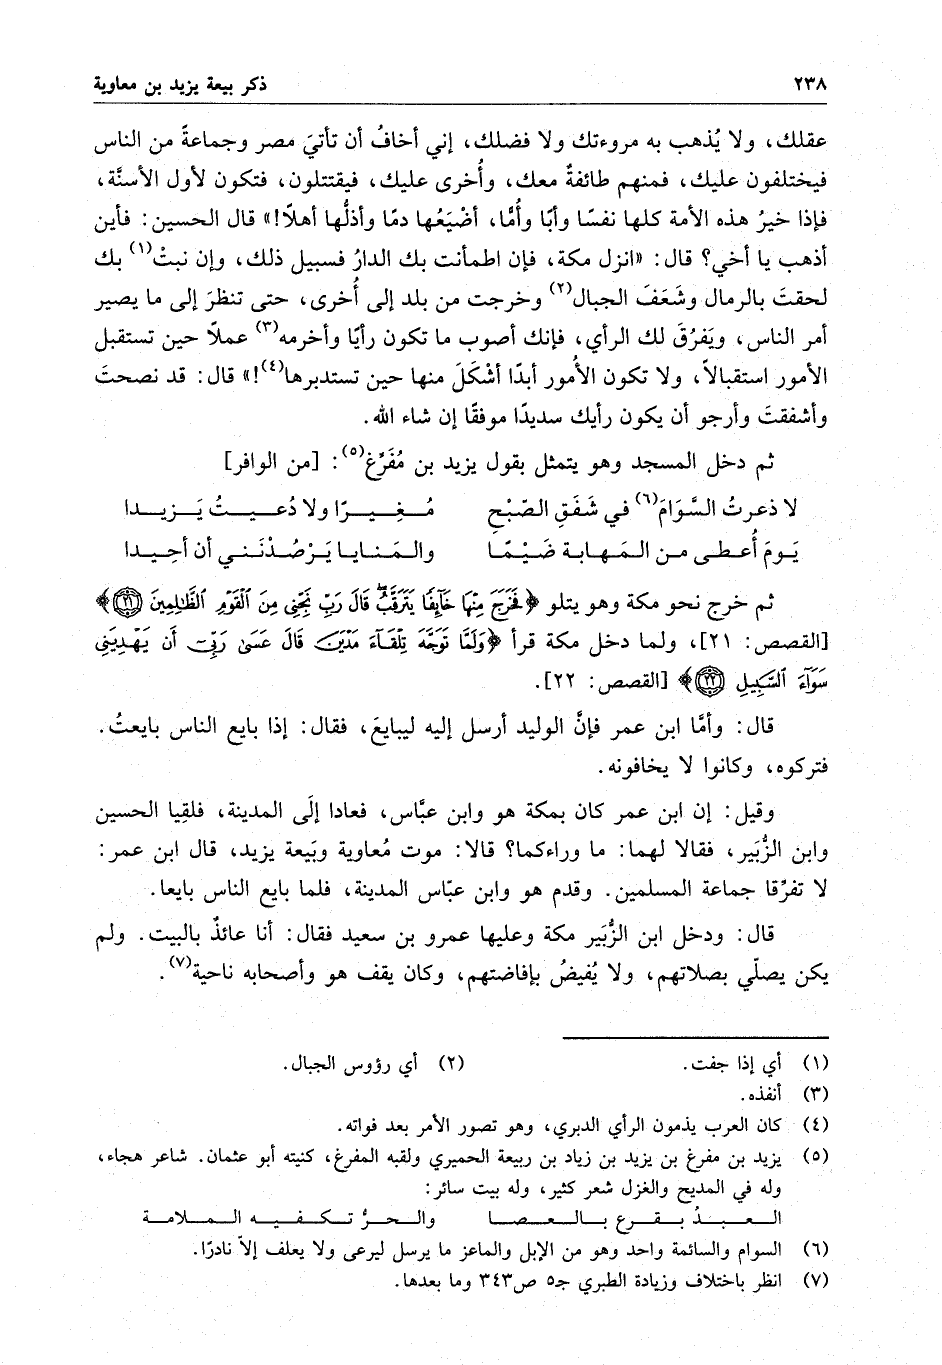 ٢٣٨ ذكر بيعة يزيد بن معاوية
عقلك، ولا يُذهب به مروءتك ولا فضلك، إني أخافُ أن تأتيَ مصر وجماعةً من الناس
فيختلفون عليك، فمنهم طائفةٌ معك، وأُخرى عليك، فيقتتلون، فتكون لأول الأسنَّة،
فإذا خيرُ هذه الأمة كلها نفسًا وأبًا وأُمًّا، أضْيَعُها دمًا وأذلُّها أهلًا!» قال الحسين: فأين
أذهب يا أخي؟ قال: «انزل مكة، فإن اطمأنت بك الدارُ فسبيل ذلك، وإن نبتْ(١) بك
لحقتَ بالرمال وشَعَفَ الجبال(٢) وخرجت من بلد إلى أُخرى، حتى تنظرَ إلى ما يصير
أمر الناس، ويَفرُقَ لك الرأي، فإنك أصوب ما تكون رأيًا وأخرمه(٣) عملًا حين تستقبل
الأمور استقبالًا، ولا تكون الأُمور أبدًا أشْكَلَ منها حين تستدبرها(٤)!» قال: قد نصحتَ
وأشفقتَ وأرجو أن يكون رأيك سديدًا موفقًا إن شاء الله.
ثم دخل المسجد وهو يتمثل بقول يزيد بن مُفَرِّغ(٥): [من الوافر]
لا ذعرتُ السَّوَامَ(٦) في شَفَقِ الصّبْحِ مُغِيرًا ولا دُعيتُ يَزيدا
يَومَ أُعطى من المَهابة ضَيْمًا والمَنايا يَرْصُدْنَني أن أحِيدا
ثم خرج نحو مكة وهو يتلو ﴿فَخَرَجَ مِنْهَا خَآئِفًا يَتَرَقَّبُۖ قَالَ رَبِّ نَجِّنِي مِنَ ٱلْقَوْمِ ٱلظَّٰلِمِينَ ٢١﴾
[القصص: ٢١]، ولما دخل مكة قرأ ﴿وَلَمَّا تَوَجَّهَ تِلْقَآءَ مَدْيَنَ قَالَ عَسَىٰ رَبِّىٓ أَن يَهْدِيَنِي
سَوَآءَ ٱلسَّبِيلِ ٢٢﴾ [القصص: ٢٢].
قال: وأمَّا ابن عمر فإنَّ الوليد أرسل إليه ليبايعَ، فقال: إذا بايع الناس بايعتُ.
فتركوه، وكانوا لا يخافونه.
وقيل: إن ابن عمر كان بمكة هو وابن عبَّاس، فعادا إلَى المدينة، فلقِيا الحسين
وابن الزُّبَير، فقالا لهما: ما وراءكما؟ قالا: موت مُعاوية وبَيعة يزيد، قال ابن عمر:
لا تفرِّقا جماعة المسلمين. وقدم هو وابن عبّاس المدينة، فلما بايع الناس بايعا.
قال: ودخل ابن الزُّبَير مكة وعليها عمرو بن سعيد فقال: أنا عائذٌ بالبيت. ولم
يكن يصلّي بصلاتهم، ولا يُفيضُ بإفاضتهم، وكان يقف هو وأصحابه ناحية(٧).
(١) أي إذا جفت. (٢) أي رؤوس الجبال.
(٣) أنفذه.
(٤) كان العرب يذمون الرأي الدبري، وهو تصور الأمر بعد فواته.
(٥) يزيد بن مفرغ بن يزيد بن زياد بن ربيعة الحميري ولقبه المفرغ، كنيته أبو عثمان. شاعر هجاء،
وله في المديح والغزل شعر كثير، وله بيت سائر:
العبدُ يقرع بالعصا والحرُّ تكفيه الملامة
(٦) السوام والسائمة واحد وهو من الإبل والماعز ما يرسل ليرعى ولا يعلف إلاّ نادرًا.
(٧) انظر باختلاف وزيادة الطبري ج٥ ص٣٤٣ وما بعدها.